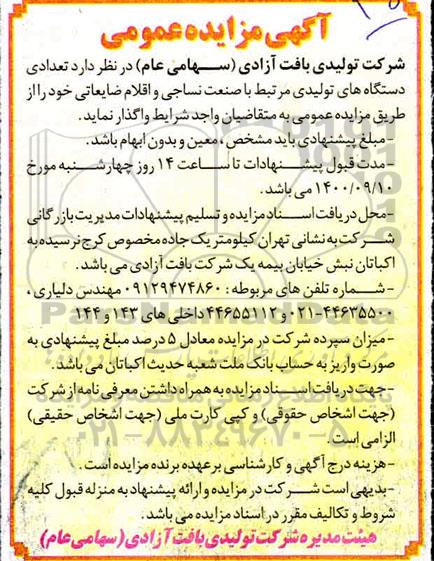 آگهی مزایده عمومی
شرکت تولیدی بافت آزادی (سهامی عام) در نظر دارد تعدادی
دستگاه های تولیدی مرتبط با صنعت نساجی و اقلام ضایعاتی خود را از
طریق مزایده عمومی به متقاضیان واجد شرایط واگذار نماید.
-مبلغ پیشنهادی باید مشخص ، معین و بدون ابهام باشد.
-مدت قبول پیشنهادات تا ساعت ۱۴ روز چهارشنبه مورخ
۱۴۰۰/۰۹/۱۰ می باشد.
-محل دریافت اسناد مزایده و تسلیم پیشنهادات مدیریت بازرگانی
شرکت به نشانی تهران کیلومتر یک جاده مخصوص کرج نرسیده به
اکباتان نبش خیابان بیمه یک شرکت بافت آزادی می باشد.
-شماره تلفن های مربوطه : ۰۹۱۲۹۴۷۴۸۶۰ مهندس دلیاری ،
۰۲۱-۴۴۶۳۵۵۰۰ و ۴۴۶۵۵۱۱۲ داخلی های ۱۴۳ و ۱۴۴
-میزان سپرده شرکت در مزایده معادل ۵ درصد مبلغ پیشنهادی به
صورت واریز به حساب بانک ملت شعبه حدیث اکباتان می باشد.
-جهت دریافت اسناد مزایده به همراه داشتن معرفی نامه از شرکت
(جهت اشخاص حقوقی) و کپی کارت ملی (جهت اشخاص حقیقی)
الزامی است.
-هزینه درج آگهی و کارشناسی بر عهده برنده مزایده است.
-بدیهی است شرکت در مزایده و ارائه پیشنهاد به منزله قبول کلیه
شروط و تکالیف مقرر در اسناد مزایده می باشد.
هیئت مدیره شرکت تولیدی بافت آزادی (سهامی عام)
ParsNamadData
۰۲۱-۸۸۳۴۹۶۷۰-۵